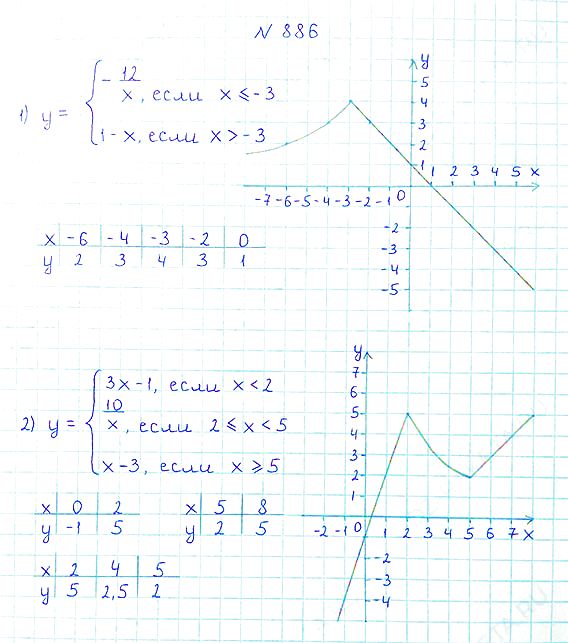 N 886
1) y = { - 12/x, если x ≤ -3
1 - x, если x > -3
x -6 -4 -3 -2 0
y 2 3 4 3 1
y
5
4
3
2
1
-7 -6 -5 -4 -3 -2 -1 0 1 2 3 4 5 x
-2
-3
-4
-5
2) y = { 3x - 1, если x < 2
10/x, если 2 ≤ x < 5
x - 3, если x ≥ 5
x 0 2
y -1 5
x 5 8
y 2 5
x 2 4 5
y 5 2,5 2
y
7
6
5
4
3
2
1
-2 -1 0 1 2 3 4 5 6 7 x
-2
-3
-4